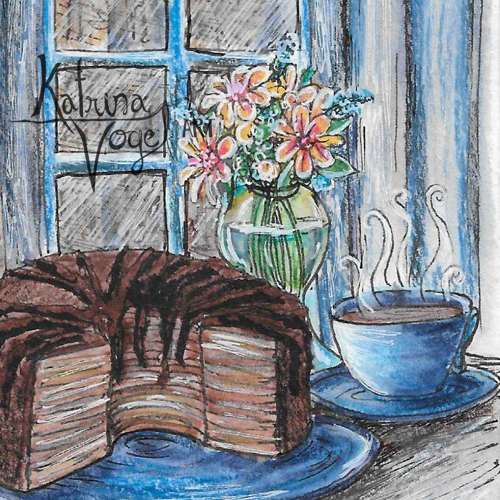 Katrina
Vogel